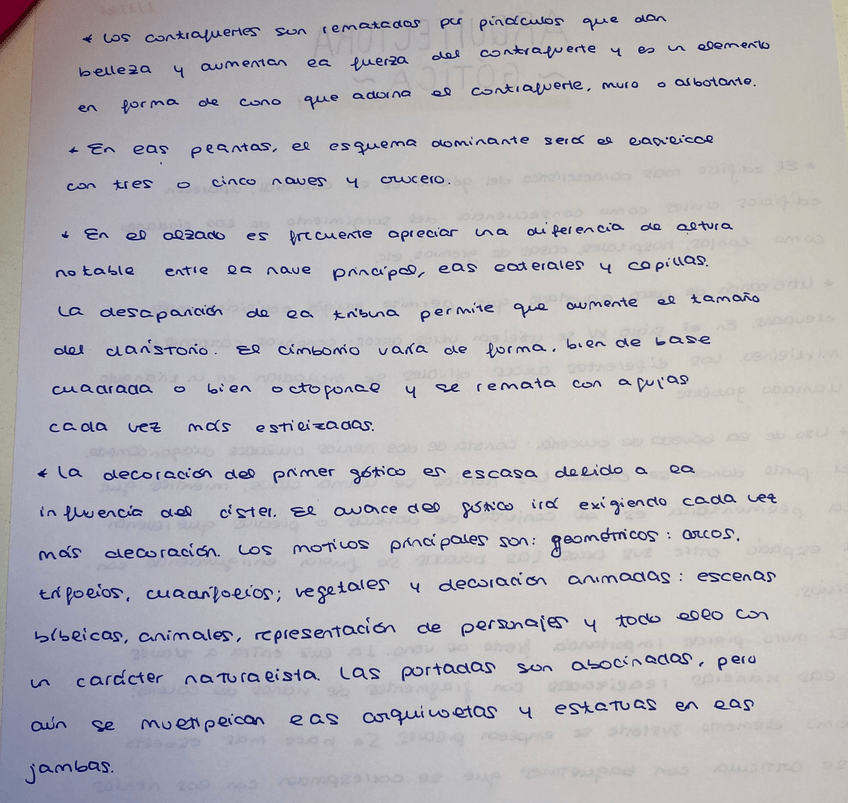 * Los contrafuertes son rematados por pináculos que dan
belleza y aumentan la fuerza del contrafuerte y es un elemento
en forma de cono que adorna el contrafuerte, muro o arbotante.
* En las plantas, el esquema dominante será el basilical
con tres o cinco naves y crucero.
* En el alzado es frecuente apreciar una diferencia de altura
notable entre la nave principal, las laterales y capillas.
La desaparición de la tribuna permite que aumente el tamaño
del claristorio. El cimborrio varía de forma, bien de base
cuadrada o bien octogonal y se remata con agujas
cada vez más estilizadas.
* La decoración del primer gótico es escasa debido a la
influencia del císter. El avance del gótico irá exigiendo cada vez
más decoración. Los motivos principales son: geométricos: arcos,
trifolios, cuadrifolios; vegetales y decoración animadas: escenas
bíblicas, animales, representación de personajes y todo ello con
un carácter naturalista. Las portadas son abocinadas, pero
aún se multiplican las arquivoltas y estatuas en las
jambas.